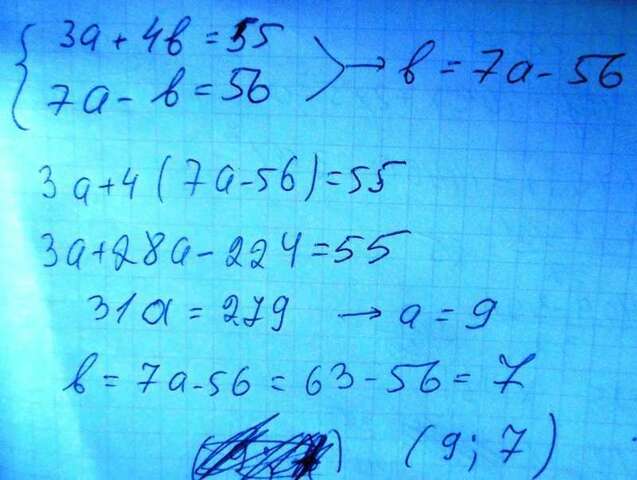 { 3a + 4b = 55
7a - b = 56 > → b = 7a - 56
3a + 4(7a - 56) = 55
3a + 28a - 224 = 55
31a = 279 → a = 9
b = 7a - 56 = 63 - 56 = 7
(9; 7)